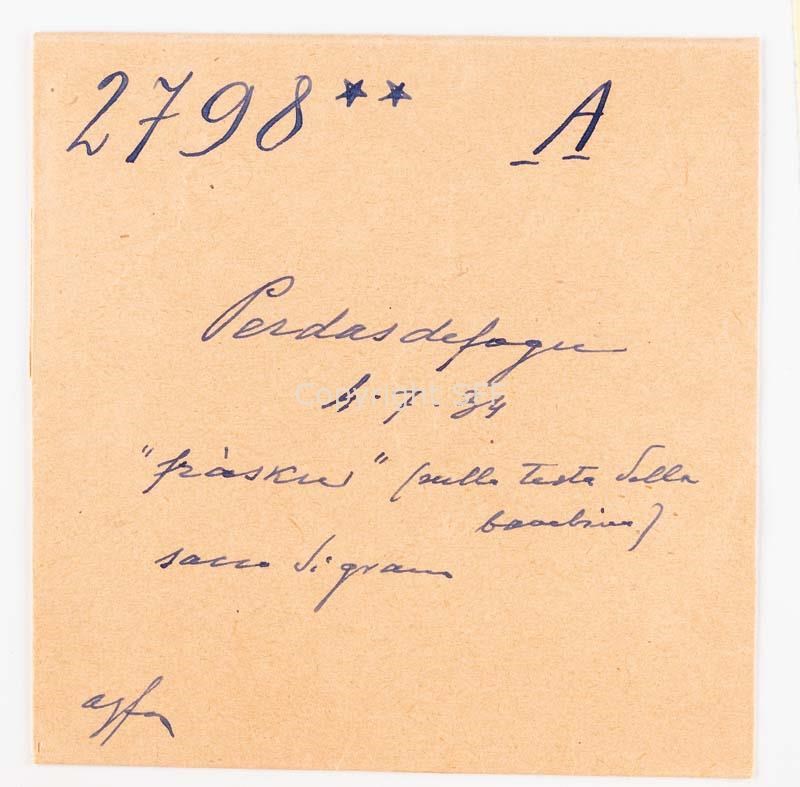 2798** A
Perdasdefogu
4.7.34
"fràsku" (sulla testa della
bambina)
sacco di grano
agfa